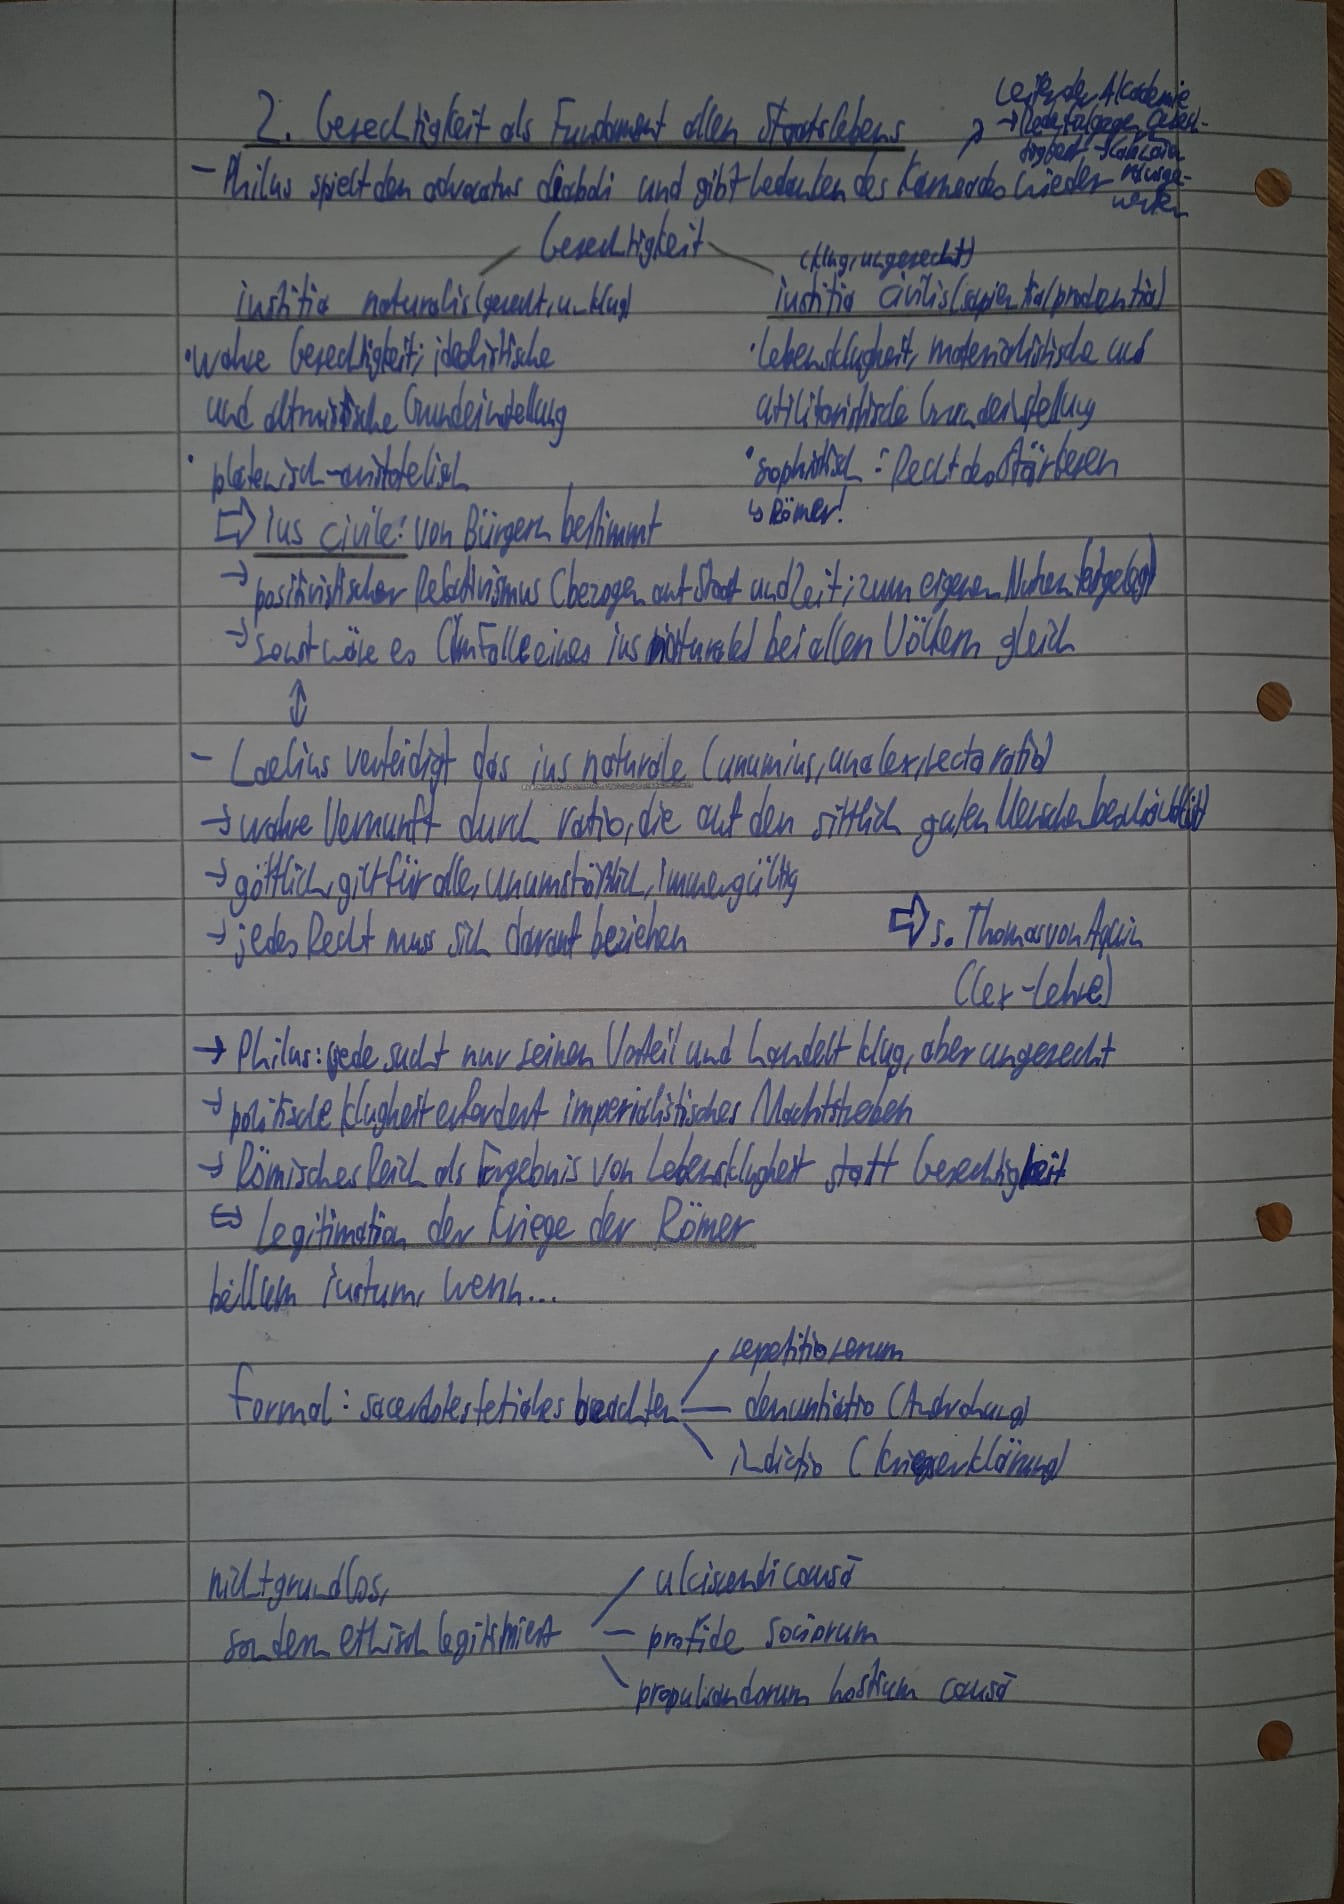 2. Gerechtigkeit als Fundament allen Staatslebens
Leiter der Akademie
→ Rede für/gegen Gerech-
tigkeit →
ausge-
- Philus spielt den advocatus diaboli und gibt Gedanken des Karneades wieder
Gerechtigkeit
(klug, ungerecht)
iustitia naturalis (gerecht, unklug)
iustitia civilis (sapientia/prudentia)
• wahre Gerechtigkeit; idealistische
und altruistische Grundeinstellung
• platonisch-aristotelisch
• Lebensklugheit, materialistische und
utilitaristische Grundeinstellung
• sophistisch: Recht des Stärkeren
↳ Römer!
⇨ ius civile: von Bürgern bestimmt
→ positivistischer Relativismus (bezogen auf Staat und Zeit; zum eigenen Nutzen festgelegt)
→ sonst wäre es (im Falle eines ius naturale) bei allen Völkern gleich
↕
- Laelius verteidigt das ius naturale (unum ius, una lex, recta ratio)
→ wahre Vernunft durch ratio, die auf den sittlich guten Menschen beschränkt ist)
→ göttlich, gilt für alle, unumstößlich, immergültig
→ jedes Recht muss sich darauf beziehen
⇨ s. Thomas von Aquin
(lex-Lehre)
→ Philus: jede sucht nur seinen Vorteil und handelt klug, aber ungerecht
→ politische Klugheit erfordert imperialistisches Machtstreben
→ Römisches Reich als Ergebnis von Lebensklugheit statt Gerechtigkeit
⇔ Legitimation der Kriege der Römer
bellum iustum, wenn...
formal: sacerdotes fetiales beachten
repetitio rerum
denuntiatio (Androhung)
indictio (Kriegserklärung)
nicht grundlos,
sondern ethisch legitimiert
ulciscendi causā
pro fide sociorum
propulsandorum hostium causā